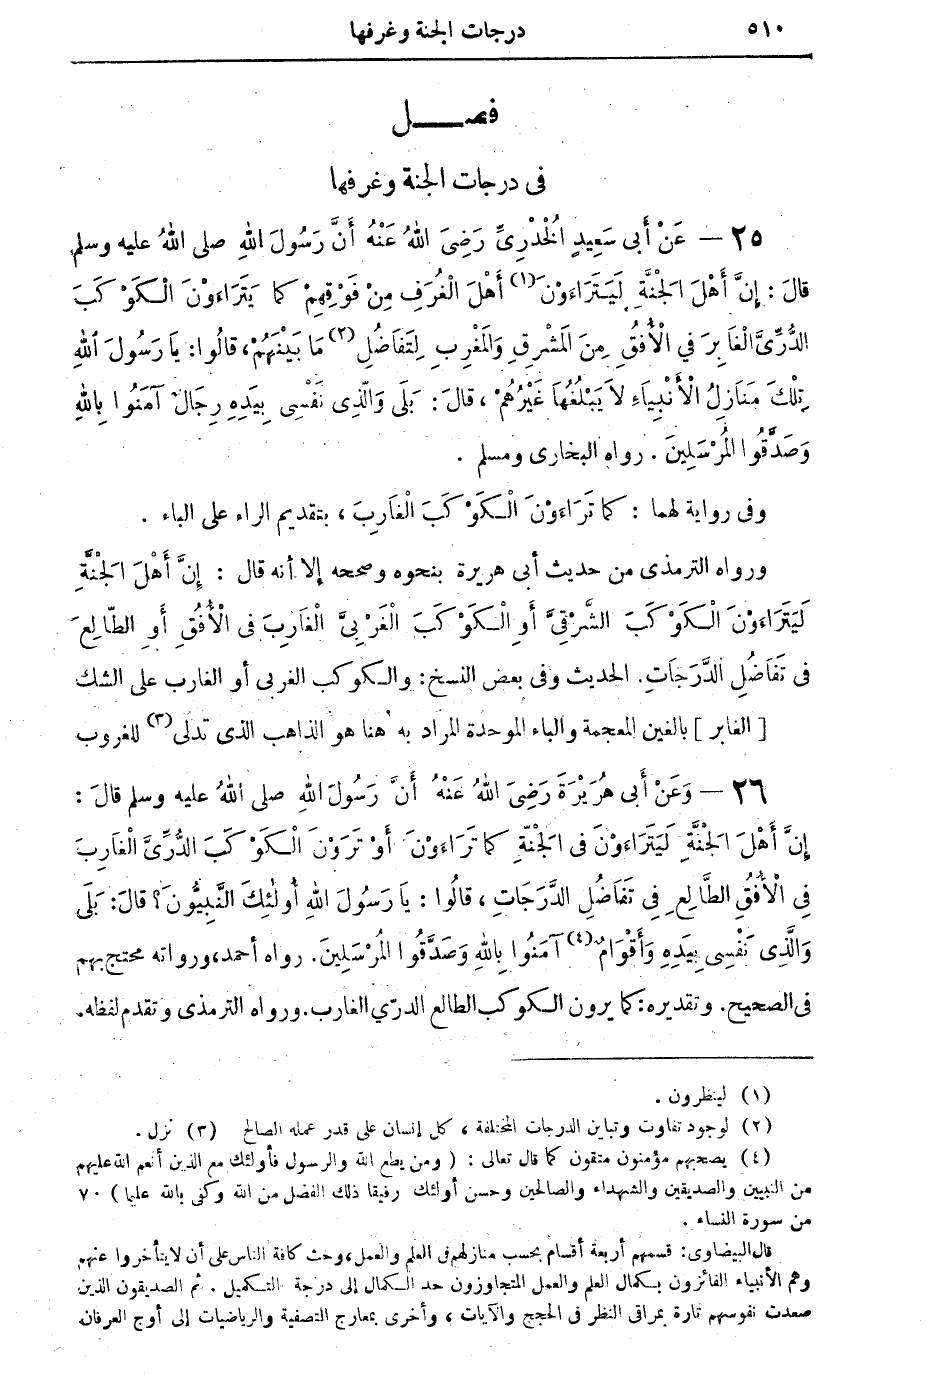 ٥١٠ درجات الجنة وغرفها
فصــــل
فى درجات الجنة وغرفها
٢٥ — عَنْ أَبى سَعِيدٍ الْخُدْرِىِّ رَضِىَ اللهُ عَنْهُ أَنَّ رَسُولَ اللهِ صلى اللهُ عليه وسلم
قالَ : إِنَّ أَهْلَ الْجَنَّةِ لَيَتَرَاءَوْنَ (١) أَهْلَ الْغُرَفِ مِنْ فَوْقِهِمْ كَمَا يَتَرَاءَوْنَ الْكَوْكَبَ
الدُّرِّىَّ الْغَابِرَ فِي الْأُفُقِ مِنَ الْمَشْرِقِ وَالْمَغْرِبِ لِتَفَاضُلِ (٢) مَا بَيْنَهُمْ، قالُوا: يَا رَسُولَ اللهِ
تِلْكَ مَنَازِلُ الْأَنْبِيَاءِ لاَ يَبْلُغُهَا غَيْرُهُمْ ، قالَ : بَلَى وَالَّذِى نَفْسِى بِيَدِهِ رِجَالٌ آمَنُوا بِاللهِ
وَصَدَّقُوا الْمُرْسَلِينَ . رواه البخارى ومسلم .
وفى رواية لهما : كَمَا تَرَاءَوْنَ الْكَوْكَبَ الْغَارِبَ ، بتقديم الراء على الباء .
ورواه الترمذى من حديث أبى هريرة بنحوه وصححه إلا أنه قال : إِنَّ أَهْلَ الْجَنَّةِ
لَيَتَرَاءَوْنَ الْكَوْكَبَ الشَّرْقِىَّ أَوِ الْكَوْكَبَ الْغَرْبِىَّ الْغَارِبَ فى الْأُفُقِ أَوِ الطَّالِعَ
فى تَفَاضُلِ الدَّرَجَاتِ. الحديث وفى بعض النسخ : والكوكب الغربى أو الغارب على الشك
[ الغابر ] بالغين المعجمة والباء الموحدة المراد به هنا هو الذاهب الذى تدلى (٣) للغروب
٢٦ — وَعَنْ أَبِى هُرَيْرَةَ رَضِىَ اللهُ عَنْهُ أَنَّ رَسُولَ اللهِ صلى اللهُ عليه وسلم قالَ :
إِنَّ أَهْلَ الْجَنَّةِ لَيَتَرَاءَوْنَ فى الْجَنَّةِ كَمَا تَرَاءَوْنَ أَوْ تَرَوْنَ الْكَوْكَبَ الدُّرِّىَّ الْغَارِبَ
فِى الْأُفُقِ الطَّالِعِ فِى تَفَاضُلِ الدَّرَجَاتِ ، قَالُوا : يَا رَسُولَ اللهِ أُولٰئِكَ النَّبِيُّونَ؟ قالَ: بَلَى
وَالَّذِى نَفْسِى بِيَدِهِ وَأَقْوَامٌ (٤) آمَنُوا بِاللهِ وَصَدَّقُوا الْمُرْسَلِينَ. رواه أحمد، ورواته محتج بهم
فى الصحيح. وتقديره: كما يرون الكوكب الطالع الدرّي الغارب. ورواه الترمذى وتقدم لفظه.
(١) لينظرون .
(٢) لوجود تفاوت وتباين الدرجات المختلفة ، كل إنسان على قدر عمله الصالح (٣) نزل .
(٤) يصحبهم مؤمنون متقون كما قال تعالى : ( ومن يطع الله والرسول فأولئك مع الذين أنعم الله عليهم
من النبيين والصديقين والشهداء والصالحين وحسن أولئك رفيقا ذلك الفضل من الله وكفى بالله عليما ) ٧٠
من سورة النساء .
قال البيضاوى: قسمهم أربعة أقسام بحسب منازلهم فى العلم والعمل، وحث كافة الناس على أن لا يتأخروا عنهم
وهم الأنبياء الفائزون بكمال العلم والعمل المتجاوزون حد الكمال إلى درجة التكميل . ثم الصديقون الذين
صعدت نفوسهم تارة بمراقى النظر فى الحجج والآيات ، وأخرى بمعارج التصفية والرياضيات إلى أوج العرفان